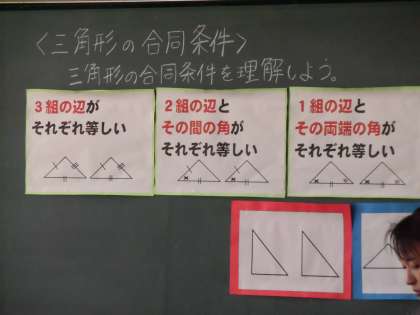 〈三角形の合同条件〉
三角形の合同条件を理解しよう。
3組の辺が
それぞれ等しい
2組の辺と
その間の角が
それぞれ等しい
1組の辺と
その両端の角が
それぞれ等しい